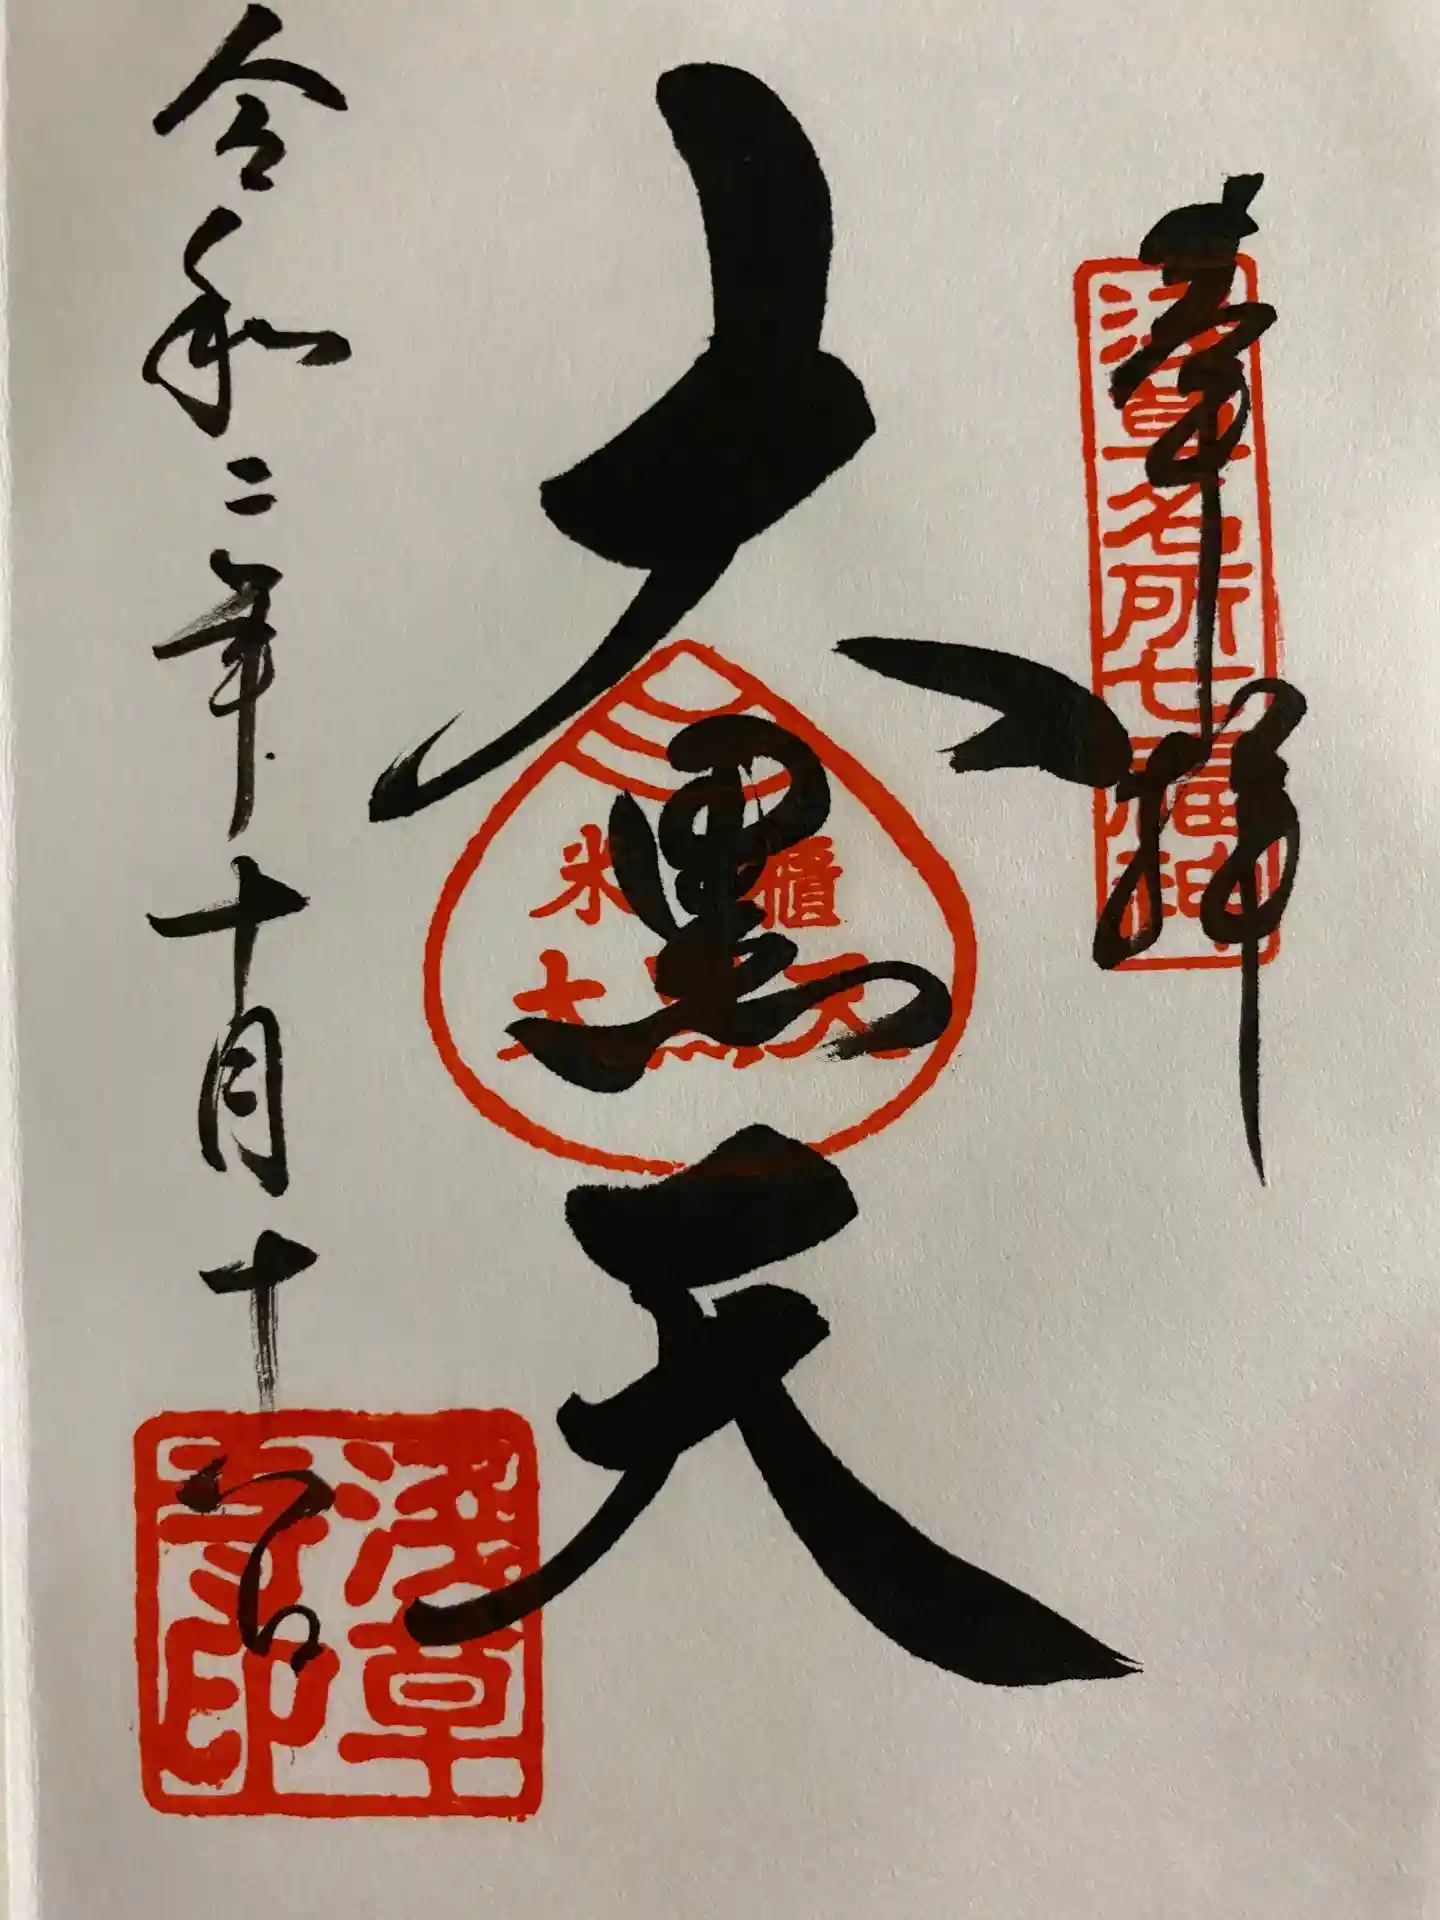 奉拝
浅草名所七福神
大黒天
米櫃
大黒天
令和二年十月十八日
淺草
寺印